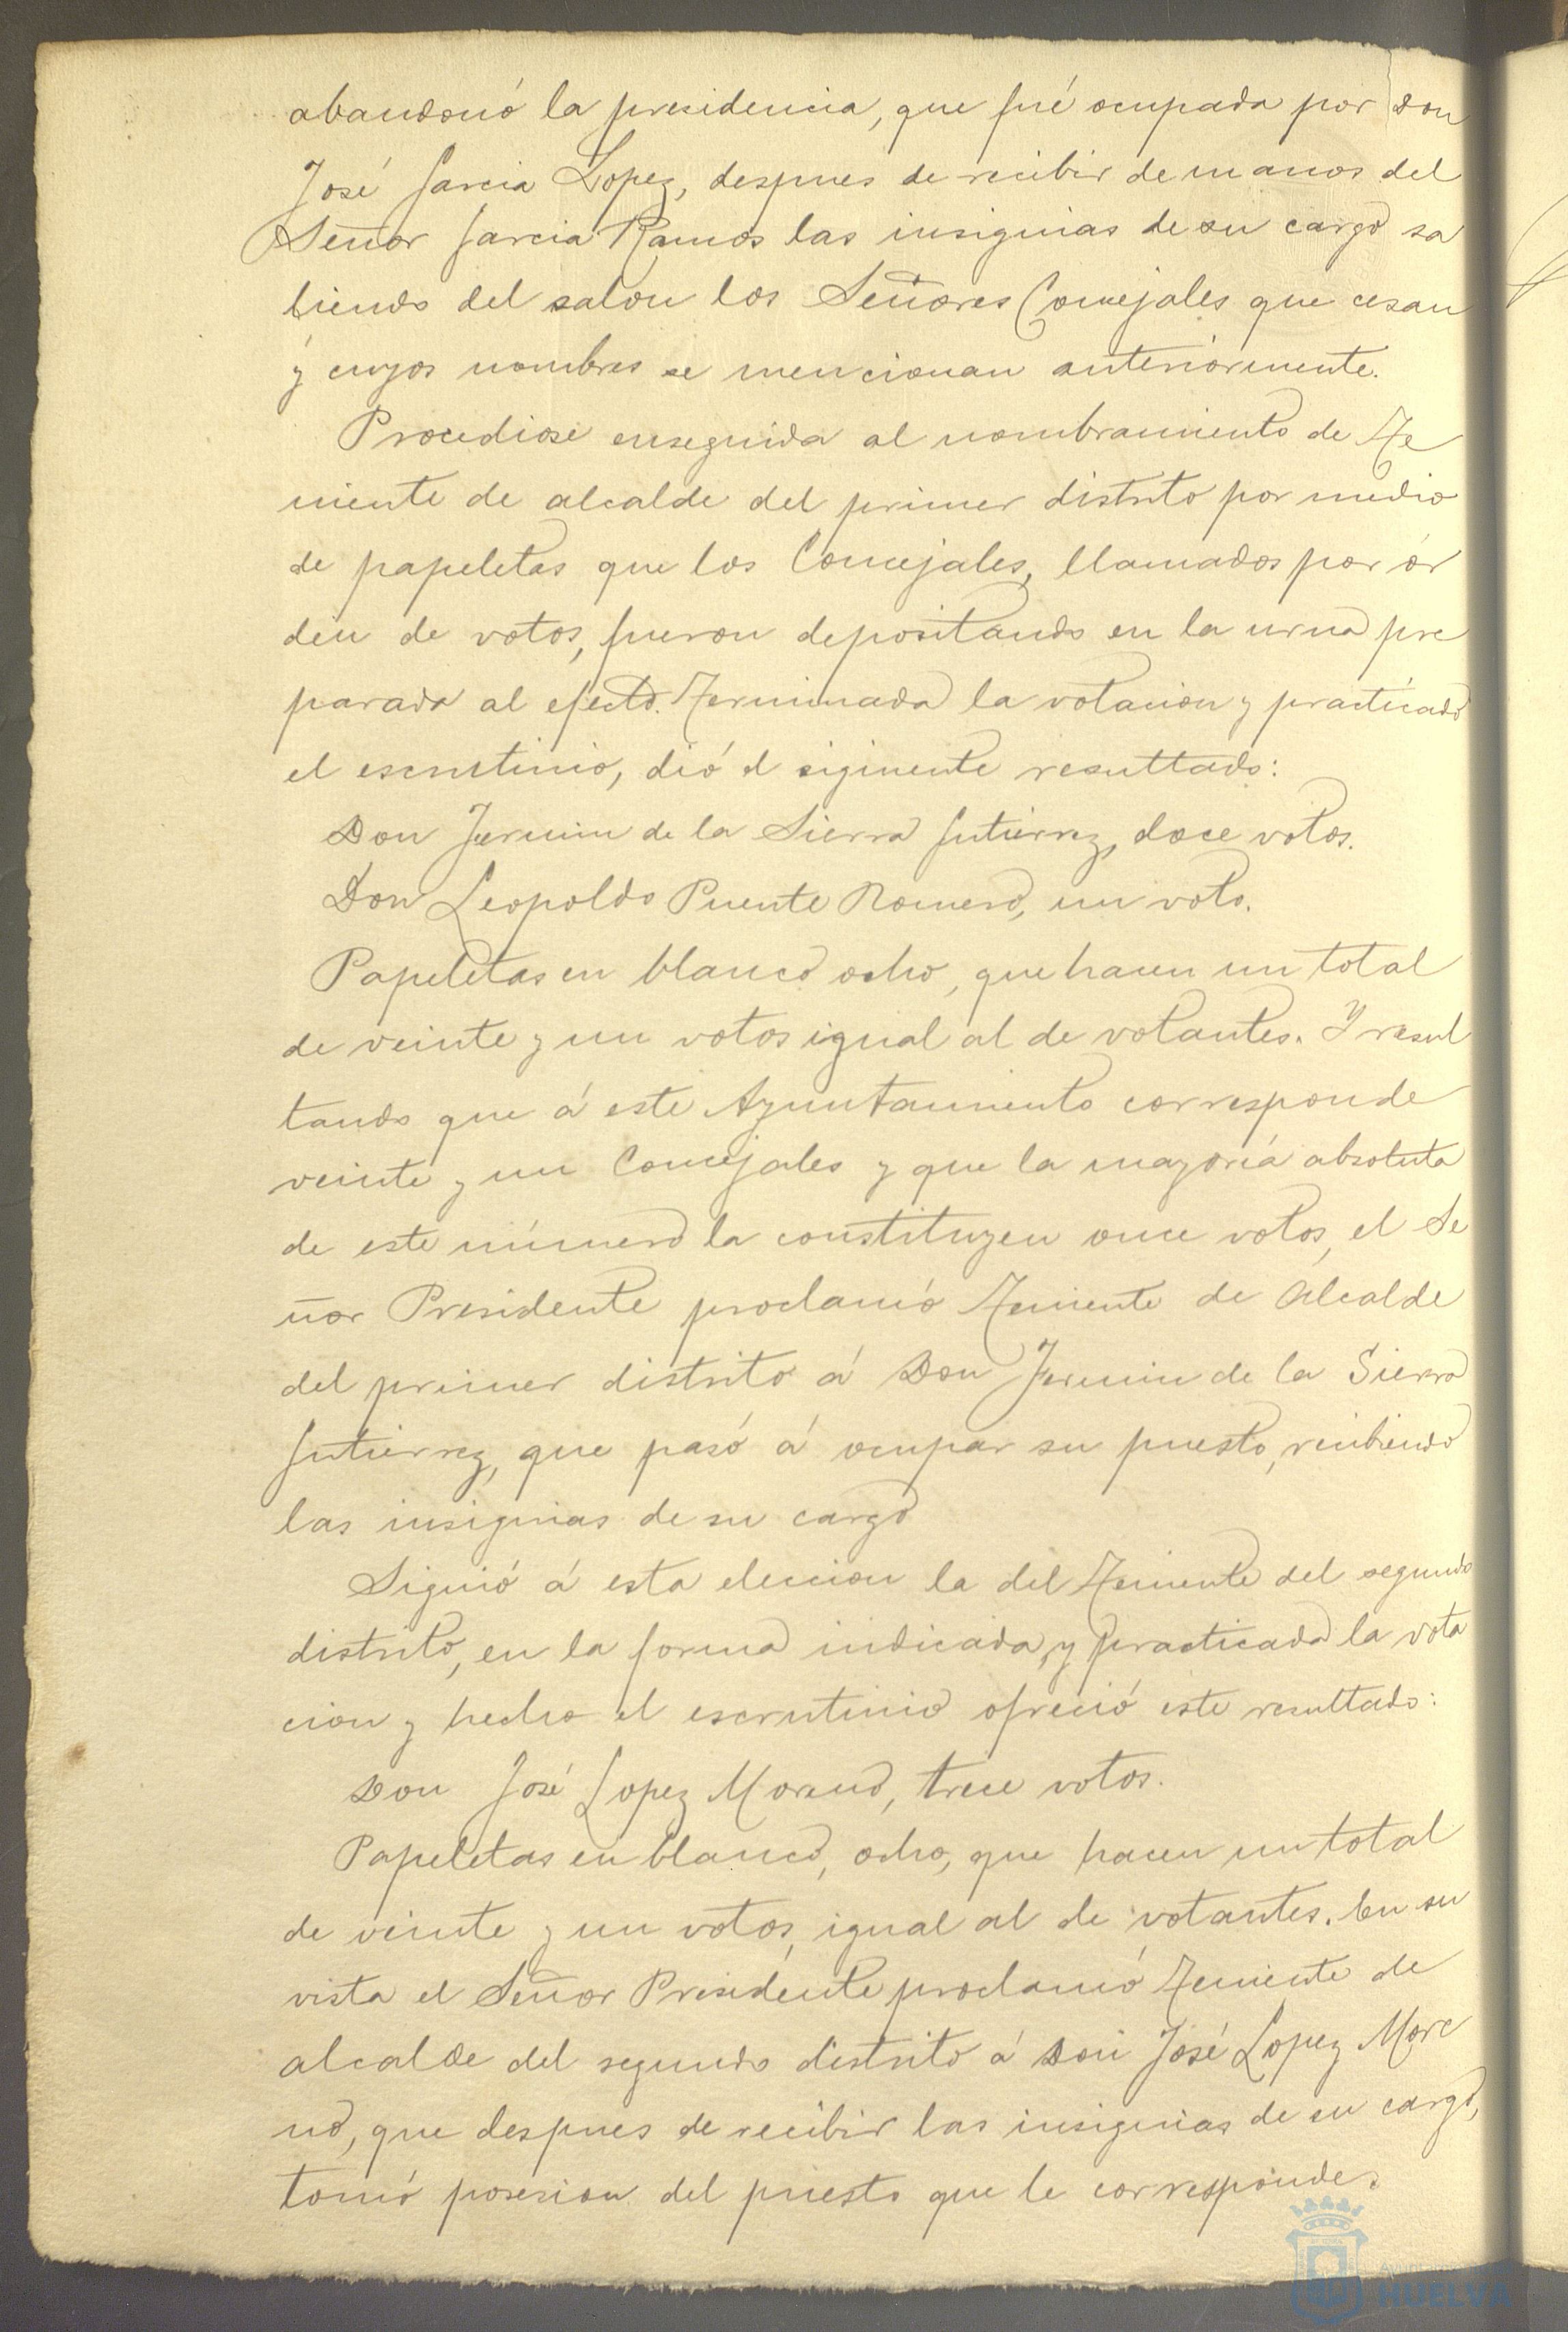 abandonó la presidencia, que fué ocupada por Don
José Garcia Lopez, despues de recibir de manos del
Señor Garcia Ramos las insignias de su cargo sa
liendo del salon los Señores Concejales que cesan
y cuyos nombres se mencionan anteriormente.
Procediose enseguida al nombramiento de Te
niente de alcalde del primer distrito por medio
de papeletas que los Concejales, llamados por ór
den de votos, fueron depositando en la urna pre
parada al efecto. Terminada la votacion y practicado
el escrutinio, dió el siguiente resultado:
Don Fermin de la Sierra Gutierrez, doce votos.
Don Leopoldo Puente Romero, un voto.
Papeletas en blanco ocho, que hacen un total
de veinte y un votos igual al de votantes. Y resul
tando que á este Ayuntamiento corresponde
veinte y un Concejales y que la mayoría absoluta
de este número la constituyen once votos, el Se
ñor Presidente proclamó Teniente de Alcalde
del primer distrito á Don Fermin de la Sierra
Gutierrez, que pasó á ocupar su puesto, recibiendo
las insignias de su cargo
Siguió á esta eleccion la del Teniente del segundo
distrito, en la forma indicada, y practicada la vota
cion y hecho el escrutinio ofreció este resultado:
Don José Lopez Moreno, trece votos.
Papeletas en blanco, ocho, que hacen un total
de veinte y un votos, igual al de votantes. En su
vista el Señor Presidente proclamó Teniente de
alcalde del segundo distrito á Don José Lopez More
no, que despues de recibir las insignias de su cargo,
tomó posesion del puesto que le corresponde.
HUELVA